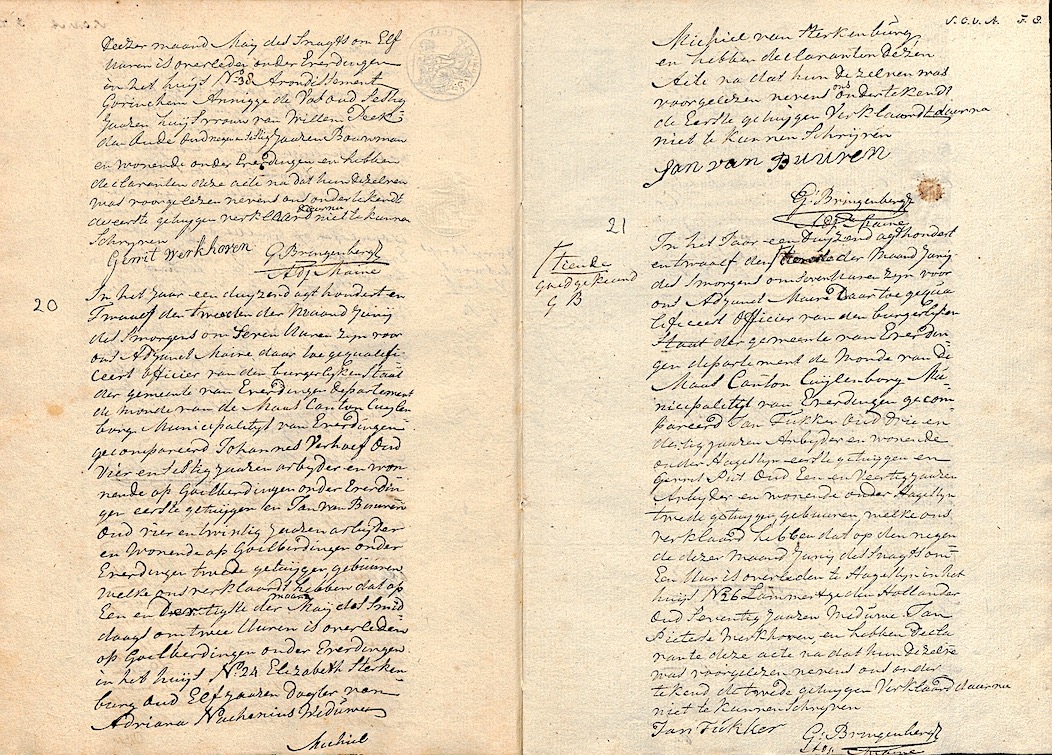 deezer maand Maij des Snagts om Elf
Uuren is overleden onder Everdingen
in het huijs No 38 Arondissement
Gorinchem Annigge de Vos oud Sestig
Jaaren huijsvrouw van Willem
den Oude oud negenensestig Jaaren Bouwman
en wonende onder Everdingen en hebben
declaranten deze acte na dat hun dezelven
was voorgelezen nevens ons ondertekendt
de eerste getuijgen verklaard daarna niet te kunnen
Schrijven
Gerrit Verkhoven G. Bringenberg
Adj Maire
20
In het Jaar een duijzend agt hondert en
Twaalf den tweeden der Maand Junij
des Smorgens om Seven Uuren zijn voor
ons Adjunct Maire daar toe gequalifi-
ceert officier van den burgerlijken Staat
der gemeente van Everdingen departement
de monde van de Maas Canton Cuijlen
borg Municipalitijt van Everdingen
gecompareerd Johannes Verhoef Oud
Vier en Sestig Jaaren arbijder en won
nende op Goilberdingen onder Everdin-
gen eerste getuijgen en Jan van Buuren
Oud vier en twintig Jaaren arbijder
en Wonende op Goilberdingen onder
Everdingen twede getuijgen gebueren
welke ons verklaard hebben dat op
Een en dertigste der maand Maij des Smid
daags om twee Uuren is overleden
op Goilberdingen onder Everdingen
in het huijs No 24 Elizabeth Sterken
burg Oud Elf Jaaren Dogter van
Adriana Nathenius Weduwe
Michiel
S.O.V.A. F. 3.
Michiel van Sterkenburg
en hebben declaranten dezen
Acte na dat hun dezelven was
voorgelezen nevens ons ondertekendt
de Eerste getuijgen Verklaardt daarna
niet te kunnen Schrijven
Jan van Buuren
G. Bringenberg
Adj Maire
21
Tiende
goedgekeund
G B
In het Jaar een Duijzend agt hondert
en twaalf den tiende der Maand Junij
des Smorgens om Seven Uuren zijn voor
ons Adjunct Maire Daar toe gequa
lificeert Officier van den burgerlijken
Staat der gemeente van Everdin-
gen departement de Monde van de
Maas Canton Cuijlenborg Mu-
nicipalitijt van Everdingen gecom-
pareerd Jan Fukker Oud Drie en
dertig Jaaren Arbijder en wonende
onder Hagestijn eerste getuijgen en
Gerrit Piet Oud Een en Veertig Jaaren
Arbijder en wonende onder Hagestijn
twede getuijgen gebuuren welke ons
verklaard hebben dat op den negen
de dezer maand Junij des Snagts om
Een Uur is overleden te Hagestijn in het
huijs No 26 Lammertge den Hollander
Oud Seventig Jaaren Weduwe Jan
Pieterse Werkhoven en hebben Decla
rante deze acte na dat hun dezelve
was voorgelezen nevens ons onder
tekend de twede getuijgen Verklaard daarna
niet te kunnen Schrijven
Jan Fukker G. Bringenberg
Adj Maire